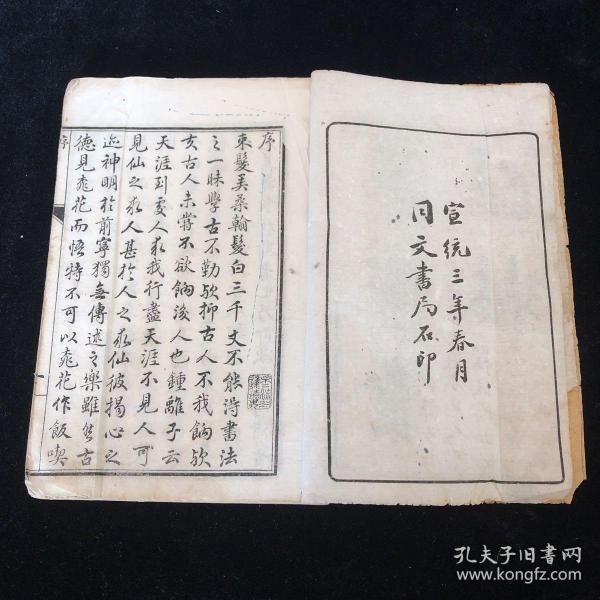 宣統三年春月
同文書局石印
序
束髮美柔翰髮白三千丈不能浔書法
之一昧學古不勤歟抑古人不我餉歟
亥古人未嘗不欲餉後人也鍾離子云
天涯到處人求我行盡天涯不見人可
見仙之求人甚於人之求仙彼揭心之
迹神明於前寧獨無傳述之樂雖然古
德見桃花而悟特不可以桃花作飯喫
序
孔夫子旧书网
www.kongfz.com